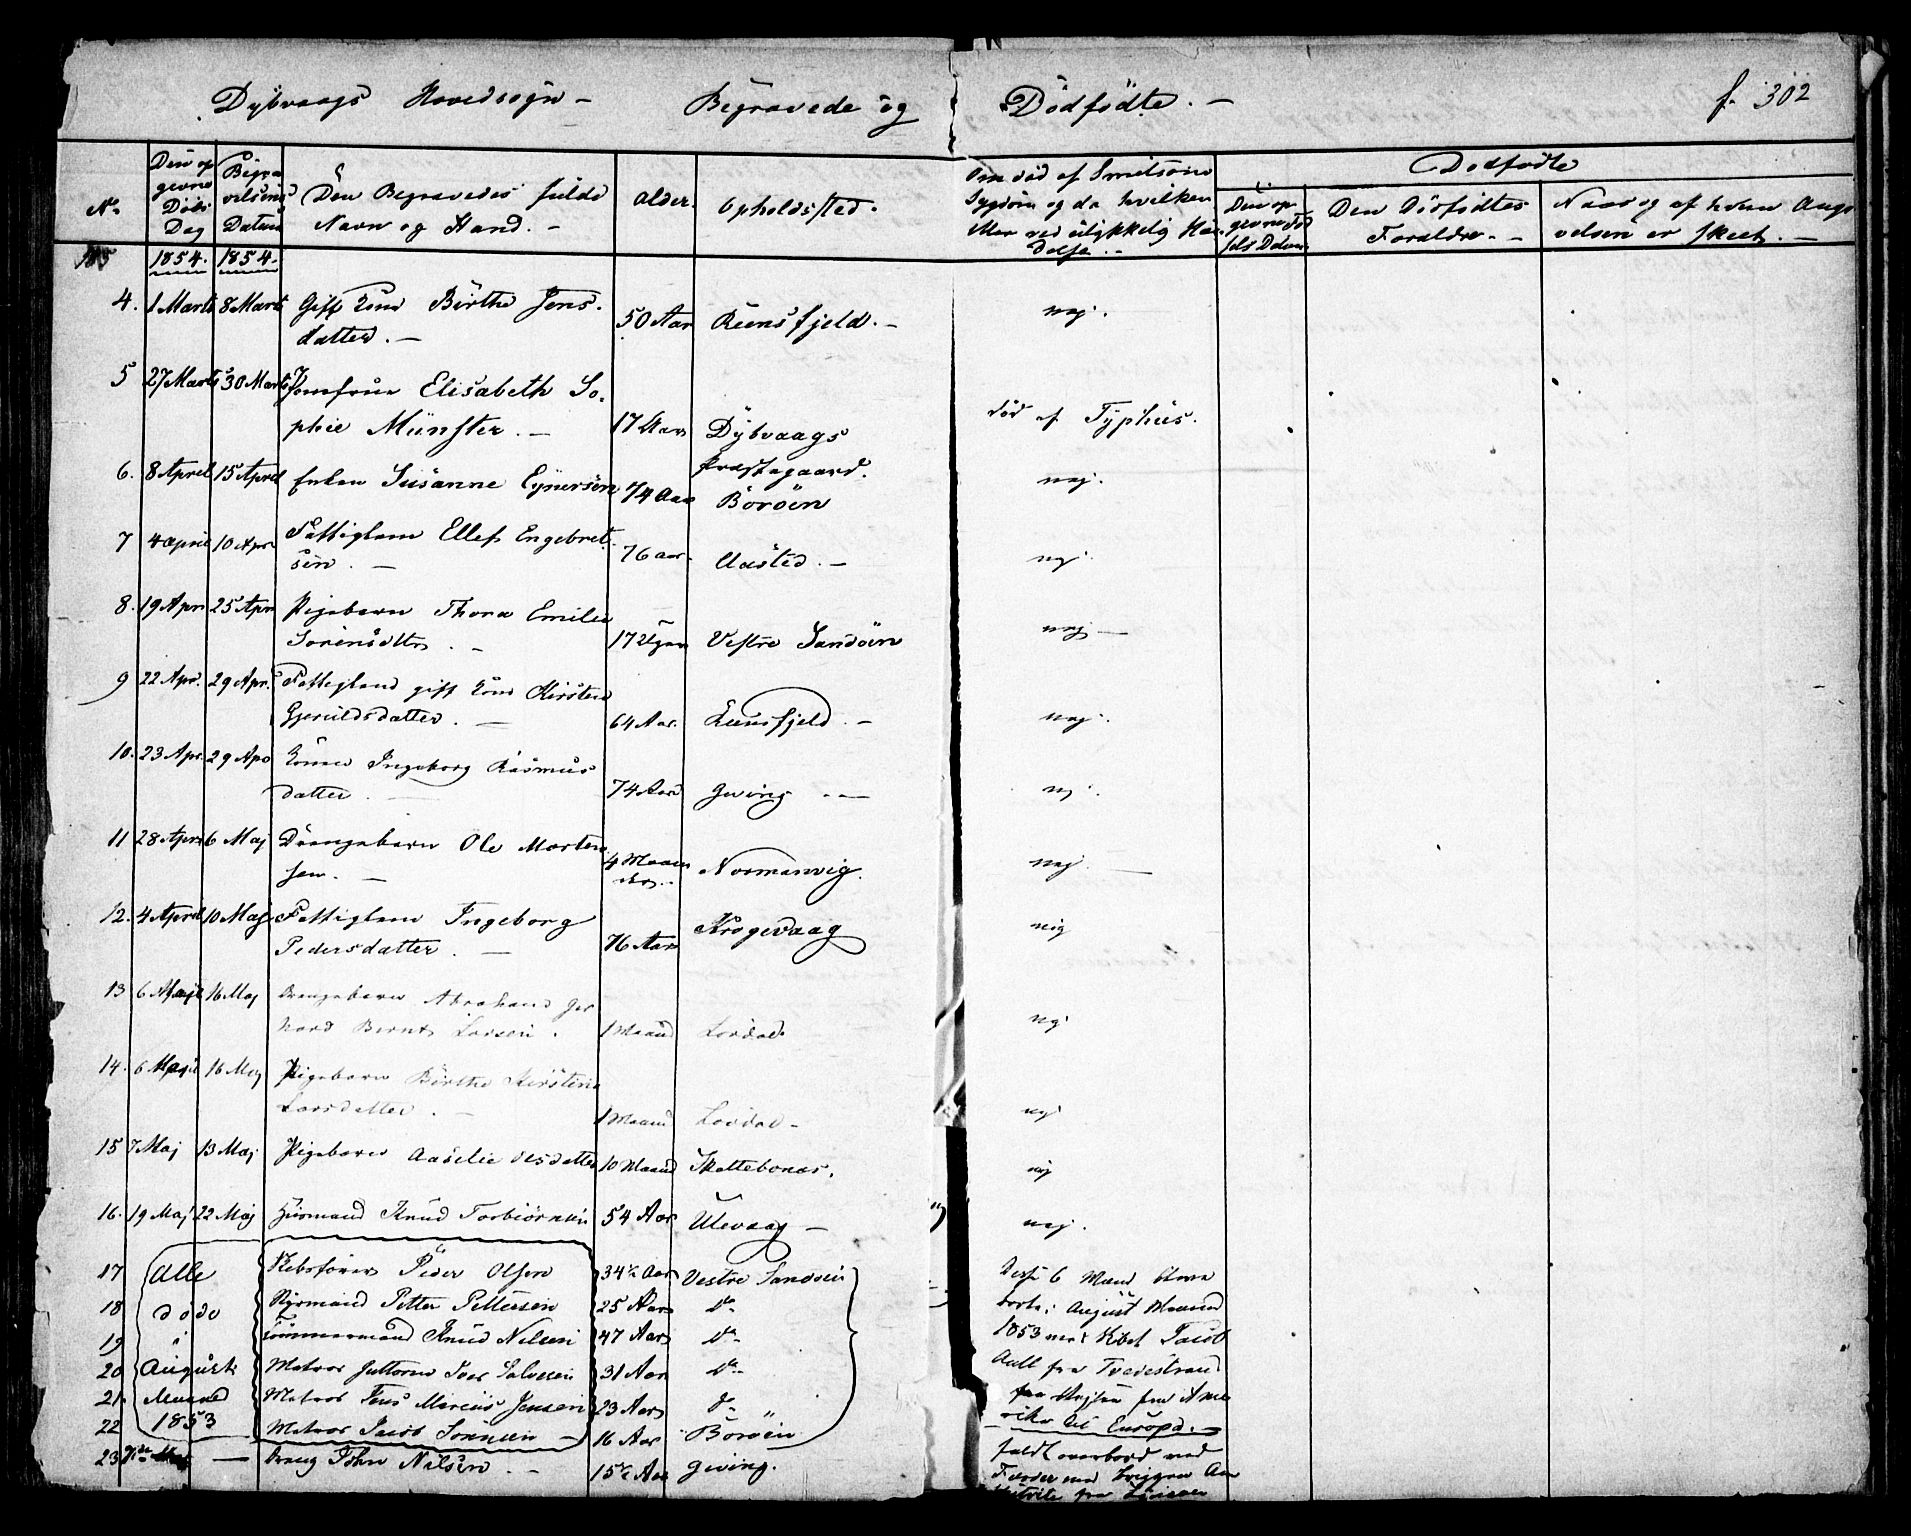 Dybvaags Hovedsogn – Begravede og Dödfödte. – f. 302
No. Den opgivne Döds Dag Begravelsens Datum Den Begravedes fulde Navn og Stand. – Alder. Opholdssted. Om död af Smitsom Sygdom og da hvilken Eller ved ulykkelig Hændelse. –
Dodfödte
Den opgivne Födsels Datum Den Dödfödtes Forældre. – Naar og af hvem Angivelsen er skeet. –
1854. 1854.
4. 1 Marts 8 Marts Gift Kone Birthe Jens-
datter. – 50 Aar Reensfjeld. – nej.
5 27 Marts 30 Marts Jomfrue Elisabeth So-
phie Münster. – 17 Aar Dybvaags död af Typhus.
Præstegaard.
6. 8 April 15 April Enken Susanne Eynersen 74 Aar Boröen nej.
7 4 april 10 Apr Fattiglem Ellef Engebret-
sen. – 76 aar. Uasted. – nej.
8. 19 Apr 25 Apr Pigebarn Thora Emilie
Sorensdtr. – 17 Uger Vestre Sandöen nej –
9 22 Apr. 29 Apr. Fattiglem gift Kone Kirsten
Gjeruldsdatter. – 64 Aar. Leensfjeld. – nej.
10. 23 Apr. 29 Apr Konen Ingeborg Rasmus
datter. – 74 Aar Gwing – nej.
11 28 Apr 6 Maj Drengebarn Ole Morten
sen. – 4 Maaneder. Normanvig. nej. –
12. 4 April 10 Maj Fattiglem Ingeborg
Pedersdatter. – 76 Aar Krogevaag nej
13 6 16 Maj Drengebarn Abraham Ger
hard Bernt Larsen. 1 Maaned Lovdal nej
14. 6 16 Maj Pigebarn Birthe Kirstine
Larsdatter. – 1 Maaned Lovdal – nej
15 7 Maj 13 Maj Pigebarn Aaselie Olsdatter 10 Maaned Skottebonas. nej
16. 19 Maj 22 Maj Huusmand Knud Torbiörnsen 54 Aar Ulevaag – nej.
17 Alle Skibsförer Peder Olsen 34½ Aar Vestre Sandöen Disse 6 Mænd bleve
18 döde Styrmand Petter Pettersen 25 Aar do borte i August Maaned
19 i Tömmermand Knud Nilsen 47 Aar do 1853 med Skibet Jacob
20 August Matros Guttorm Iver Salvesen 31 Aar do Aall fra Tvedestrand
21. Maaned Matros Jens Marcius Jensen 23 Aar do paa Rejsen fra Ame
22 1853 Matros Jacob Sörensen – 16 Aar Boröen rika til Europa. –
23 – Dreng John Nilsen. – 15½ Aar Gwing. faldt overbord ved
med Briggen
fra